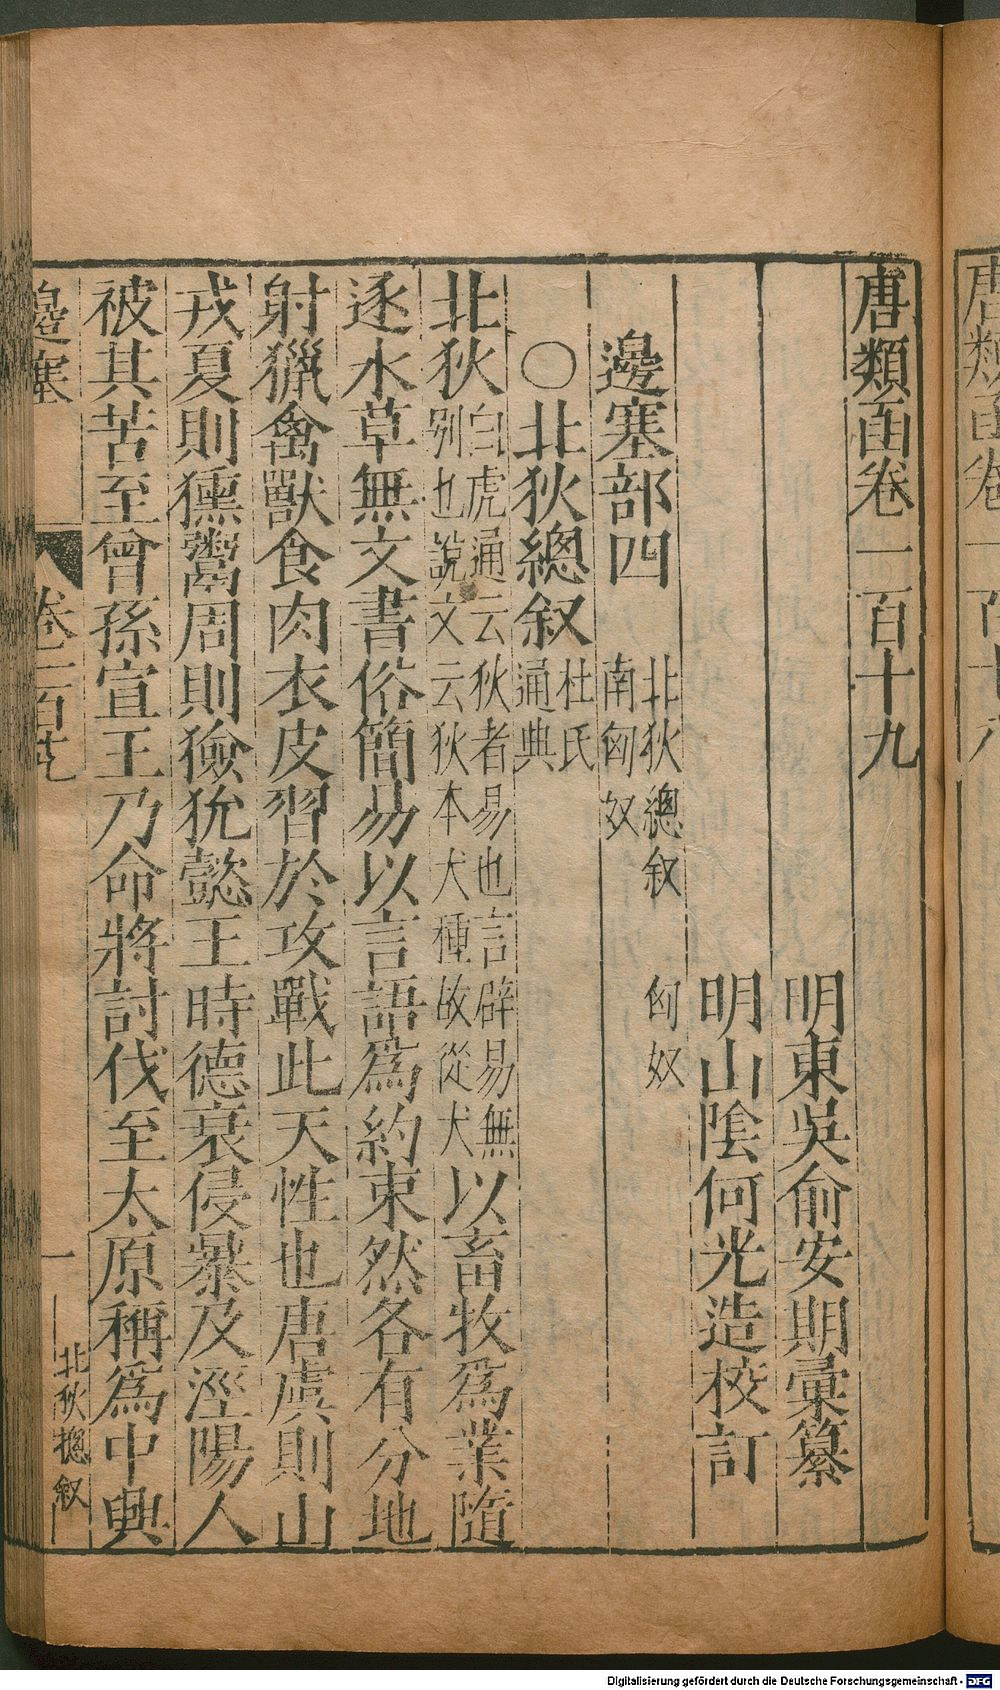 唐類函卷一百十九
明東吳俞安期彙纂
明山陰何光造校訂
邊塞部四 北狄總叙 匈奴 南匈奴
○北狄總叙 杜氏通典
北狄 白虎通云狄者易也言辟易無別也說文云狄本犬種故從犬 以畜牧爲業隨
逐水草無文書俗簡易以言語爲約束然各有分地
射獵禽獸食肉衣皮習於攻戰此天性也唐虞則山
戎夏則獯鬻周則獫狁懿王時德衰侵暴及涇陽人
被其苦至曾孫宣王乃命將討伐至太原稱爲中興
邊塞 卷一百十九 一 北狄總叙
唐類函卷一百十八
Digitalisierung gefördert durch die Deutsche Forschungsgemeinschaft - DFG